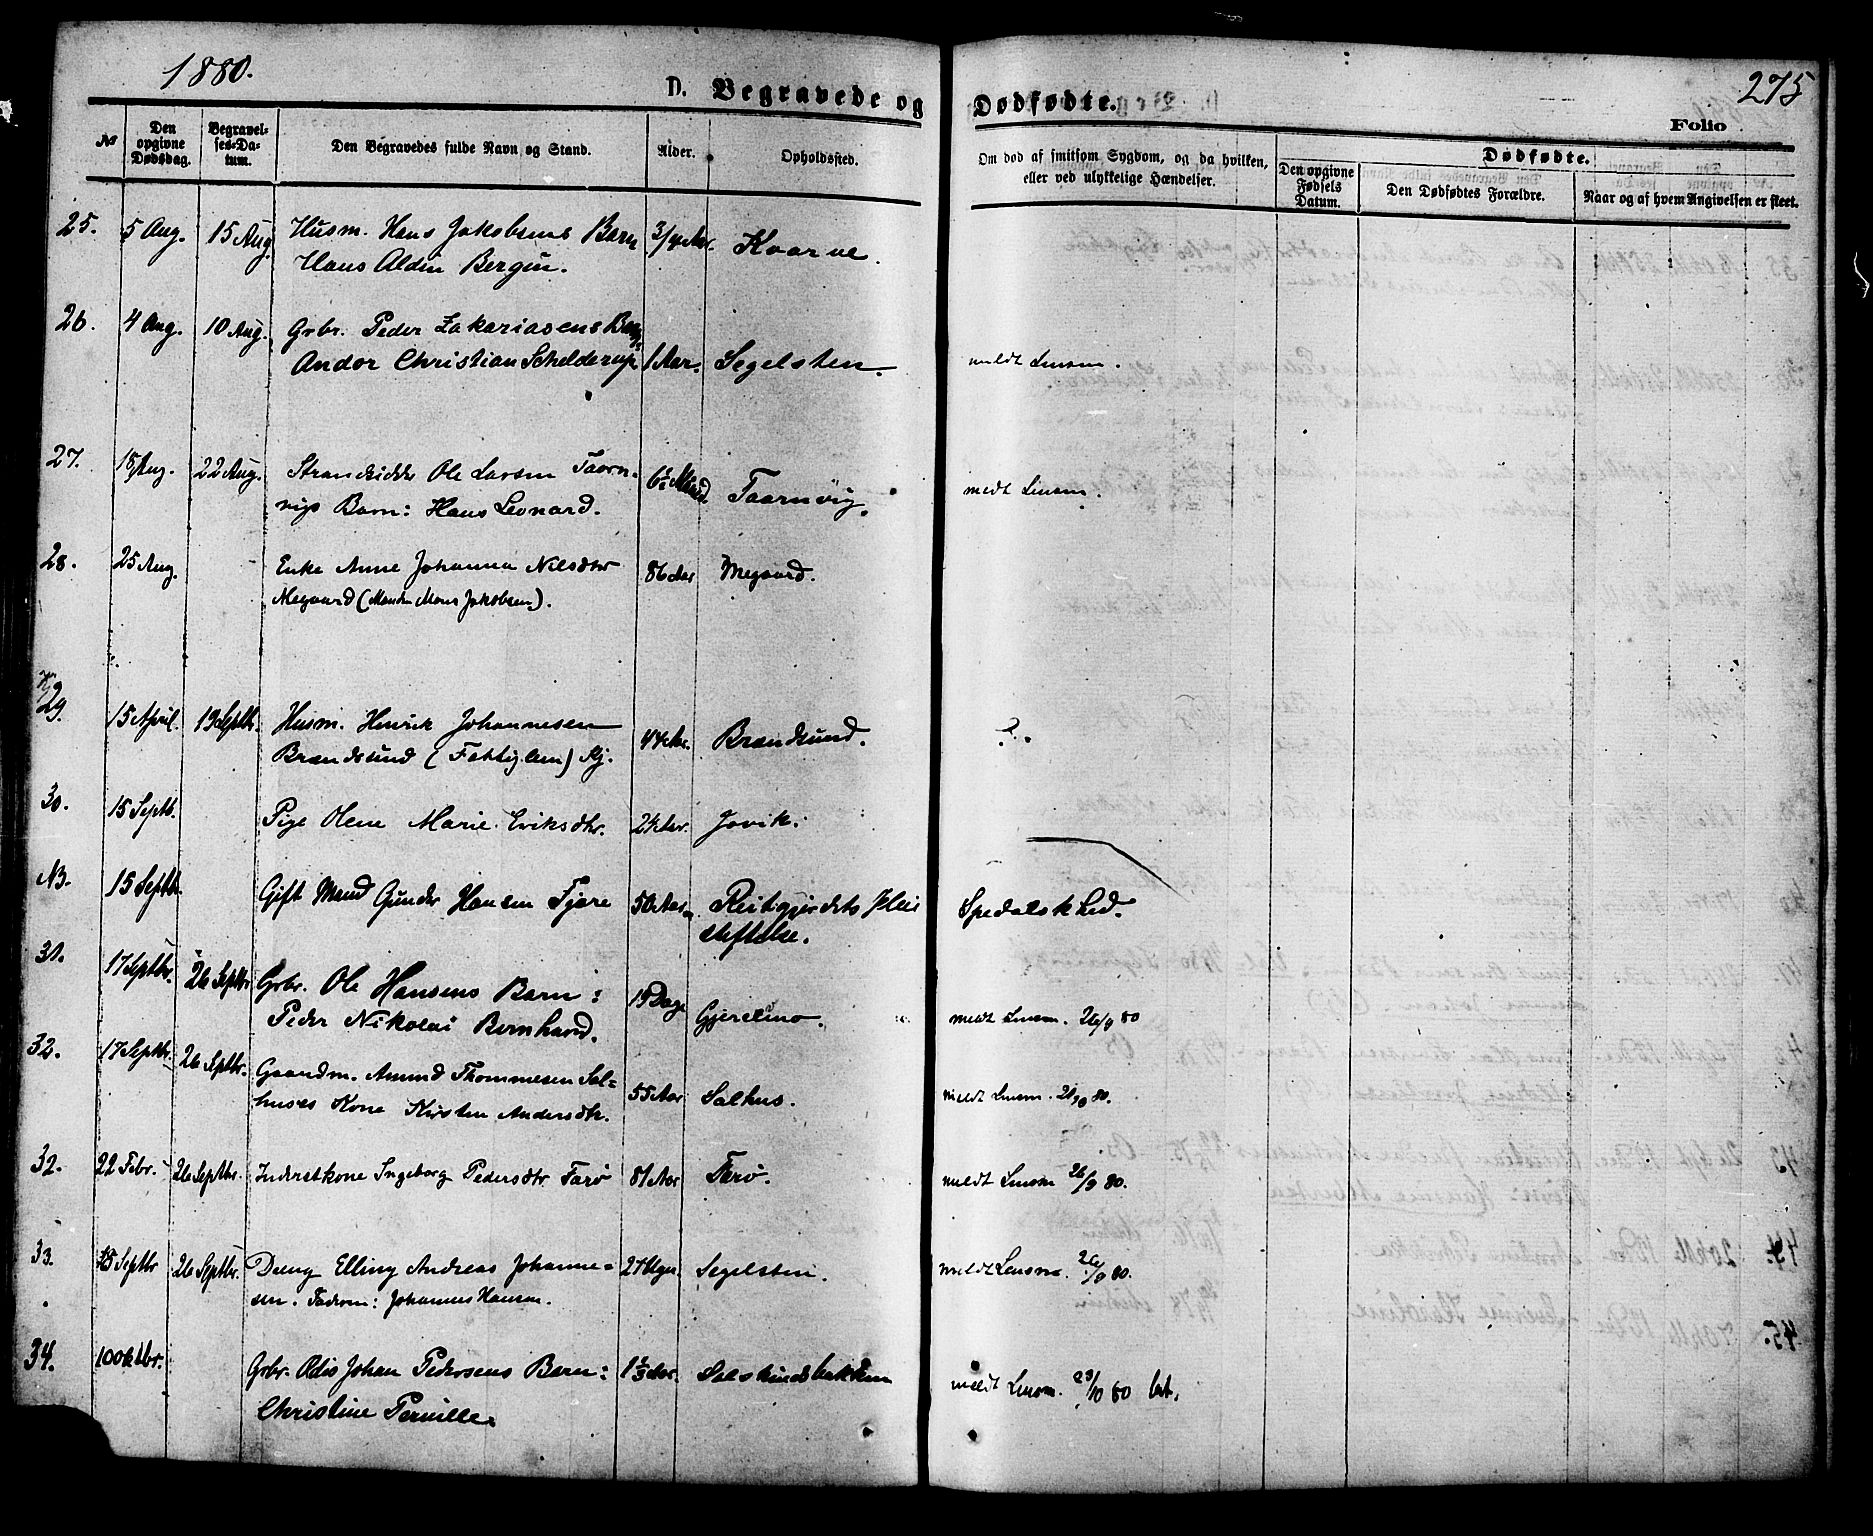 1880.
D. Begravede og Dødfødte.
275
Folio
№
Den opgivne Dødsdag.
Begravelses-Datum.
Den Begravedes fulde Navn og Stand.
Alder.
Opholdsted.
Om død af smitsom Sygdom, og da hvilken, eller ved ulykkelige Hændelser.
Dødfødte.
Den opgivne Fødsels Datum.
Den Dødfødtes Forældre.
Naar og af hvem Angivelsen er skeet.
25. 5 Aug. 15 Aug. Husm. Hans Jakobsens Barn 3/4 Aar. Kvarve.
Hans Aldin Bergin.
26. 4 Aug. 10 Aug. Gbr. Peder Zakariasens Barn
Andor Christian Schelderup 1 Aar. Segelsten. meldt Lensm.
27. 18 Aug. 22 Aug. Strandsidder Ole Larsen Taarn- 6½ Maaned. Taarnvig. meldt Lensm.
vigs Barn: Hans Leonard.
28. 25 Aug. Enke Anne Johanna Nilsdtr 86 Aar Megaard.
Megaard (Manden Mons Jakobsen).
29. 15 April. 19 Septbr. Husm. Henrik Johannesen 44 Aar. Brændsund. ?.
Brændsund (Fattiglem) Kj.
30. 15 Septb. Pige Olene Marie Eriksdtr. 24 Aar. Jovik.
NB. 15 Septbr. Gift Mand Gunder Hansen Fjære 50 Aar Reitgjerdets Pleie Spedalskhed.
stiftelse.
31. 17 Septbr. 26 Septbr Gbr. Ole Hansens Barn: 19 Dage Gjerelmo. meldt Lensm. 26/9 80
Peder Nikolai Bernhard.
32. 17 Septbr. 26 Septbr. Gaardm. Amund Thommesen Sal= 55 Aar Salhus. meldt Lensm. 26/9 80.
huses Kone Kirsten Andersdtr.
32. 22 Febr. 26 Septbr. Inderstkone Ingeborg Pedersdtr Tarø 81 Aar Tarø. meldt Lensm 26/9 80.
33. 15 Septbr 26 Septbr. Dreng Elling Andreas Johanne= 24 Uger. Segelsten. meldt Lensm. 26/9 80.
sen. Faderen: Johannes Hansen.
34. 10 Oktbr. Gbr. Odis Johan Pedersens Barn: 1⅓ Aar. meldt Lensm. 23/10 80
Christine Pernille.